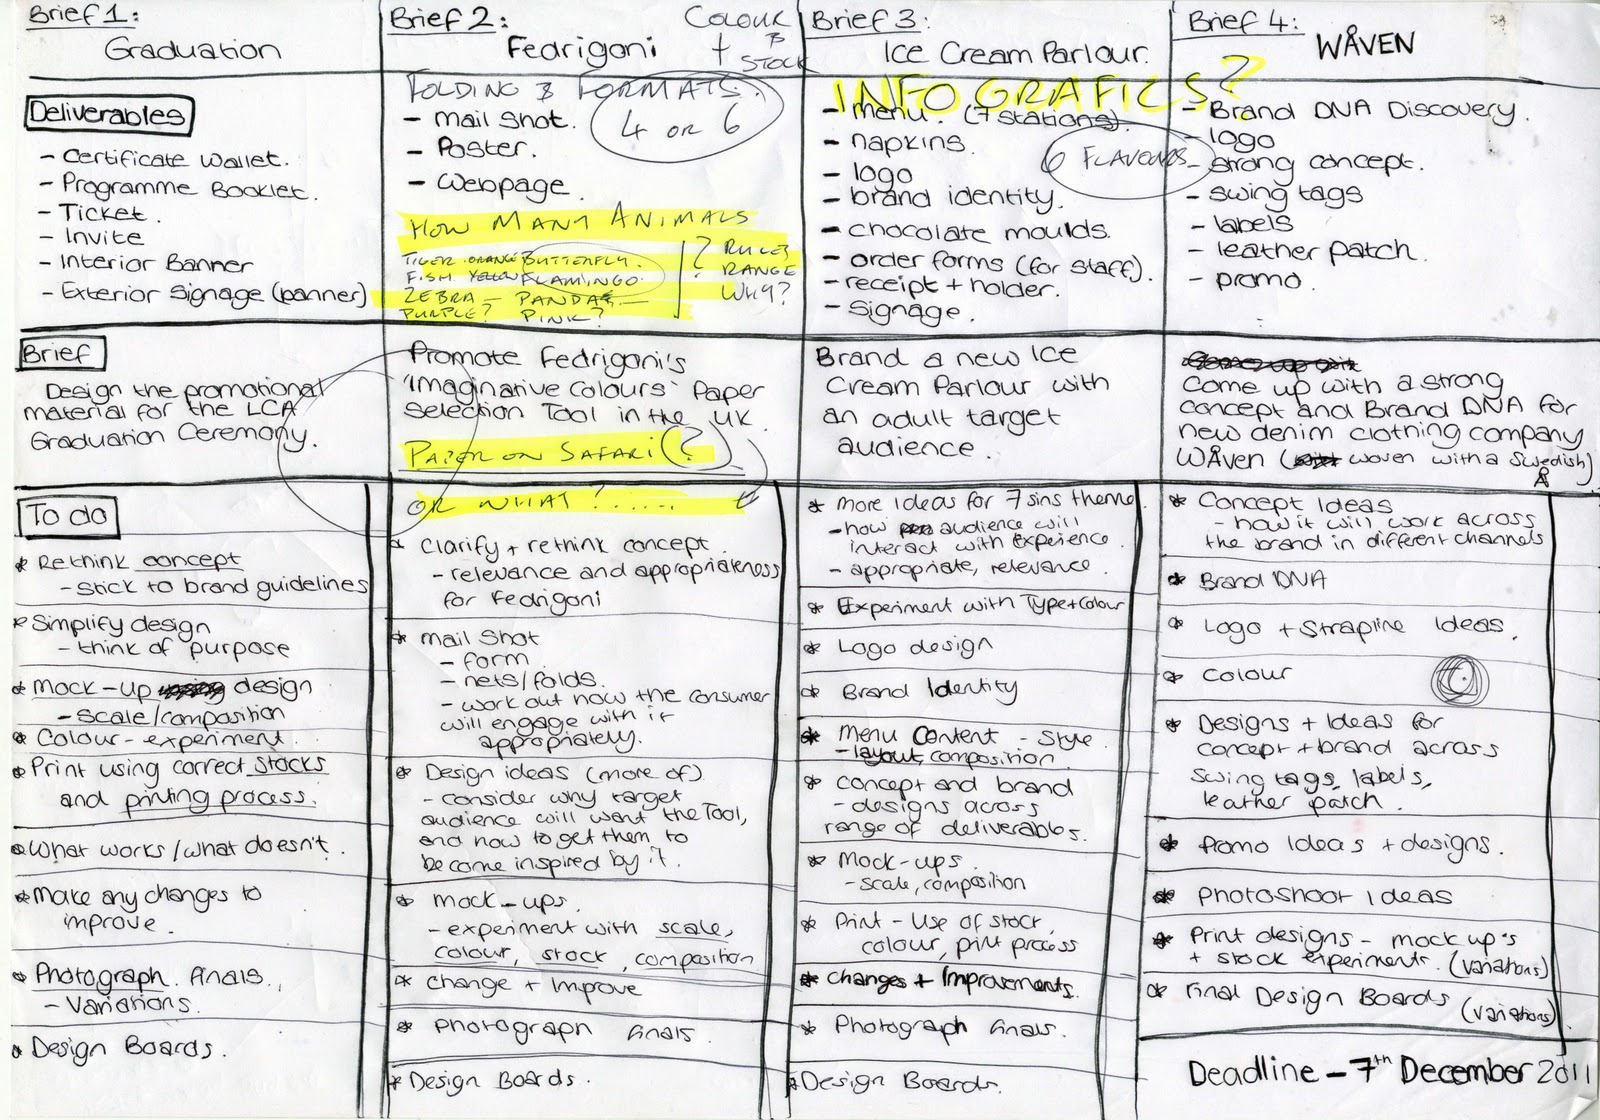 Brief 1:
Graduation
Deliverables
- Certificate Wallet.
- Programme Booklet.
- Ticket.
- Invite
- Interior Banner
- Exterior Signage (banner)
Brief
Design the promotional
material for the LCA
Graduation Ceremony.
To do
* Rethink concept
- Stick to brand guidelines
* Simplify design
- think of purpose
* Mock-up design
- scale/composition
* Colour - experiment.
* Print using correct stocks
and printing process.
* What works/what doesn't.
* Make any changes to
improve.
* Photograph finals.
- Variations.
* Design Boards.
Brief 2:
Fedrigoni
COLOUR
&
+ STOCK
FOLDING & FORMATS.
4 OR 6
- mail shot.
- Poster.
- Webpage
HOW MANY ANIMALS
TIGER ORANGE BUTTERFLY.
FISH YELLOW FLAMINGO.
ZEBRA - PANDA -
PURPLE? PINK?
? RULES
RANGE
WHY?
Promote Fedrigoni's
'Imaginative Colours' Paper
Selection Tool in the UK.
PAPER ON SAFARI (?)
OR WHAT?......
* Clarify + rethink concept
- relevance and appropriateness
for Fedrigoni
* Mail Shot
- form
- nets/folds.
- work out how the consumer
will engage with it
appropriately.
* Design ideas (more of)
- consider why target
audience will want the Tool,
and how to get them to
become inspired by it.
* Mock-ups.
- experiment with scale,
colour, stock, composition
* Change + Improve
* Photograph finals.
* Design Boards.
Brief 3:
Ice Cream Parlour.
INFOGRAFICS?
- menu. (7 stations).
- napkins.
- logo
6 FLAVOURS
- brand identity.
- chocolate moulds.
- order forms (for staff).
- receipt + holder.
- signage.
Brand a new Ice
Cream Parlour with
an adult target
audience.
* More Ideas for 7 sins theme
- how audience will
interact with experience.
- appropriate, relevance.
* Experiment with Type+Colour
* Logo design
* Brand Identity
* Menu Content - Style
- layout, composition.
* Concept and brand
- designs across
range of deliverables.
* Mock-ups.
- scale, composition
* Print - Use of stock,
colour, print process
* Changes + Improvements.
* Photograph finals.
* Design Boards.
Brief 4:
WÅVEN
- Brand DNA Discovery.
- logo
- strong concept.
- swing tags
- labels
- leather patch.
- promo.
Come up with a strong
concept and Brand DNA for
new denim clothing company
WÅven ( woven with a Swedish)
Å
* Concept Ideas
- how it will work across
the brand in different channels
* Brand DNA
* Logo + Strapline Ideas.
* Colour
* Designs + Ideas for
concept + brand across
swing tags, labels,
leather patch.
* Promo Ideas + designs.
* Photoshoot Ideas
* Print designs - mock up's
+ stock experiments. (variations)
* Final Design Boards (variations)
Deadline - 7th December 2011